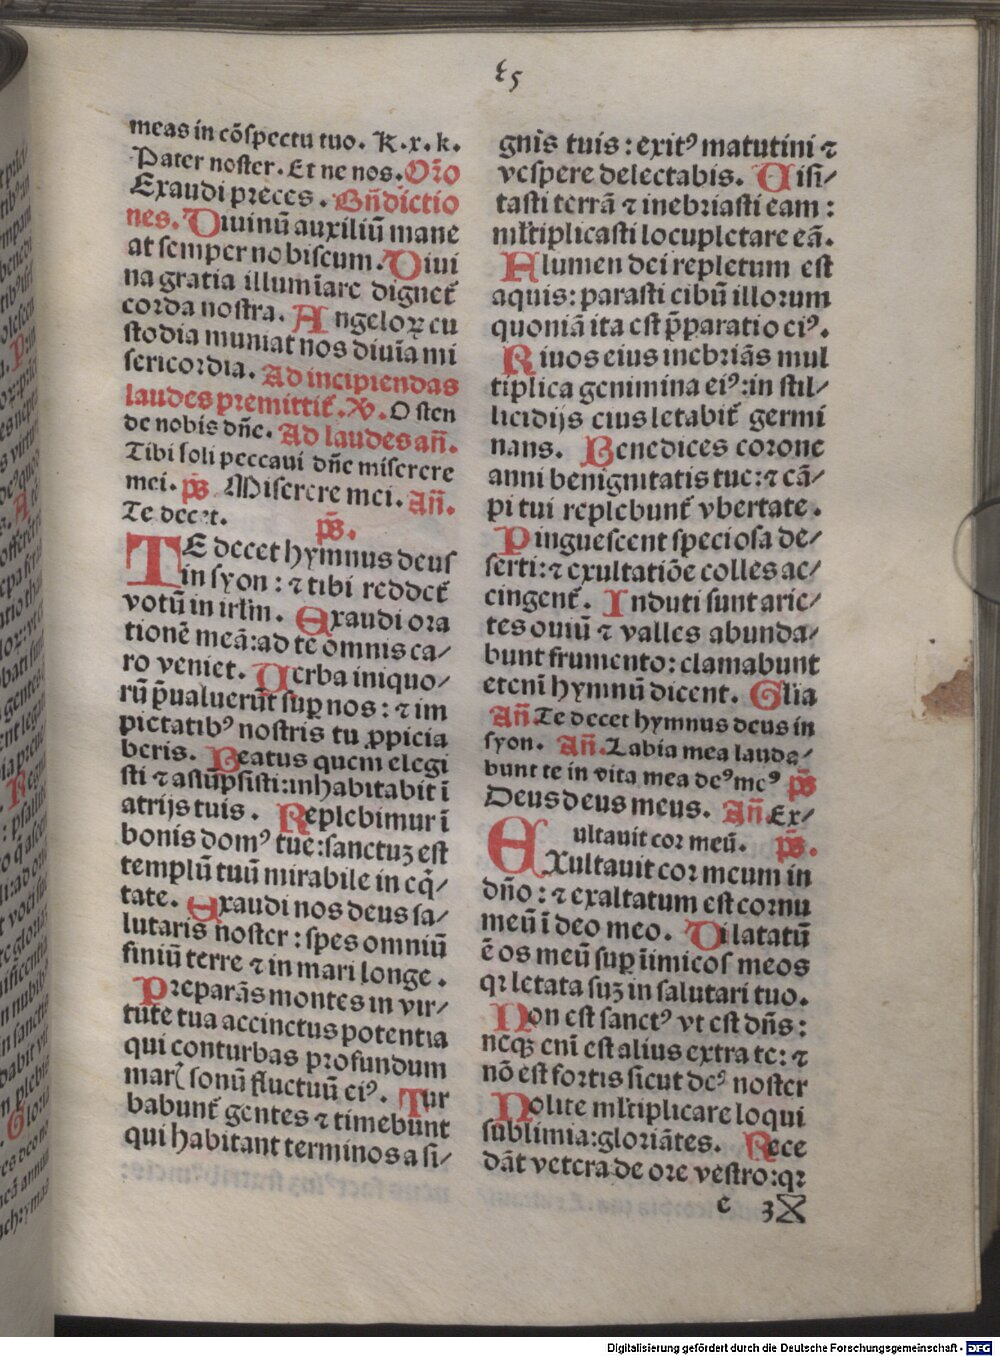 ƭ5
meas in cõſpectu tuo. K. x. k.
Pater noſter. Et ne nos. Or̃o
Exaudi preces. Bñdictio
nes. Diuinũ auxiliũ mane
at ſemper nobiſcum. Diui
na gratia illumīare dignet᷑
corda noſtra. Angeloꝝ cu
ſtodia muniat nos diuīa mi
ſericordia. Ad incipiendas
laudes premittit᷑. V. Oſten
de nobis dñe. Ad laudes añ.
Tibi ſoli peccaui dñe miſerere
mei. p̄s Miſerere mei. Añ.
Te decet. p̄s.
TE decet hymnus deus
in ſyon: ⁊ tibi reddet᷑
votũ in irłm. Exaudi ora
tionẽ meã: ad te omnis ca⸗
ro veniet. Verba iniquo⸗
rũ p̄ualuerũt ſuꝑ nos: ⁊ im
pietatibꝰ noſtris tu ꝓpicia
beris. Beatus quem elegi
ſti ⁊ aſũpſiſti: inhabitabit ī
atrijs tuis. Replebimur ī
bonis domꝰ tue: ſanctuʒ eſt
templũ tuũ mirabile in eq̃⸗
tate. Exaudi nos deus ſa⸗
lutaris noſter: ſpes omniũ
finiũ terre ⁊ in mari longe.
Preparãs montes in vir⸗
tute tua accinctus potentia
qui conturbas profundum
marꝭ ſonũ fluctuũ eiꝰ. Tur
babunt᷑ gentes ⁊ timebunt
qui habitant terminos a ſi⸗
gnis tuis: exitꝰ matutini ⁊
veſpere delectabis. Uiſi⸗
taſti terrã ⁊ inebriaſti eam:
mĺtiplicaſti locupletare eã.
Flumen dei repletum eſt
aquis: paraſti cibũ illorum
quoniã ita eſt p̄paratio eiꝰ.
Riuos eius inebriãs mul
tiplica genimina eiꝰ: in ſtil⸗
licidijs eius letabit᷑ germi
nans. Benedices corone
anni benignitatis tue: ⁊ cã⸗
pi tui replebunt᷑ vbertate.
Pingueſcent ſpecioſa de⸗
ſerti: ⁊ exultatiõe colles ac⸗
cingent᷑. Induti ſunt arie⸗
tes ouiũ ⁊ valles abunda⸗
bunt frumento: clamabunt
etenī hymnũ dicent. Glia
Añ. Te decet hymnus deus in
ſyon. Añ. Labia mea lauda⸗
bunt te in vita mea deꝰ meꝰ p̄s
Deus deus meus. Añ. Ex⸗
ultauit cor meũ. p̄s.
EXultauit cor meum in
dño: ⁊ exaltatum eſt cornu
meũ ī deo meo. Dilatatũ
ẽ os meũ ſuꝑ īimicoſ meos
qꝛ letata ſuʒ in ſalutari tuo.
Non eſt ſanctꝰ vt eſt dñs:
neqʒ enī eſt alius extra te: ⁊
nõ eſt fortis ſicut deꝰ noſter
Nolite mĺtiplicare loqui
ſublimia: gloriãtes. Rece
dãt vetera de ore veſtro: qꝛ
e 3
Digitalisierung gefördert durch die Deutsche Forschungsgemeinschaft - DFG